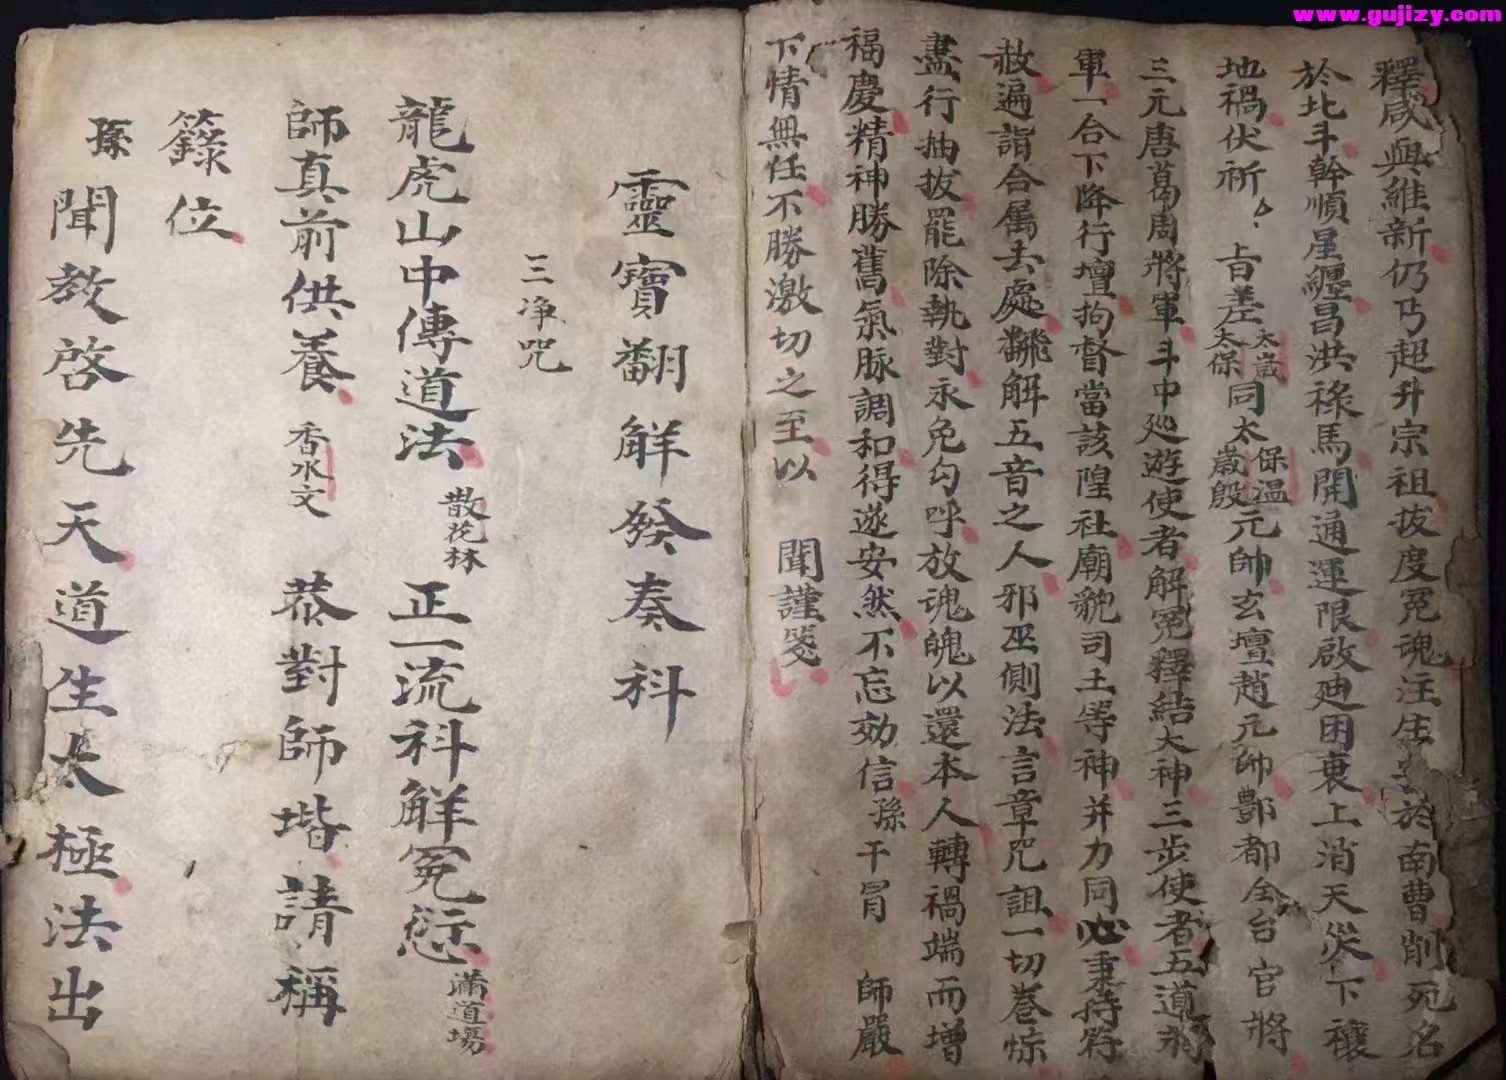 www.gujizy.com
釋咸興維新仍乃超升宗祖拔度冤魂注生於南曹削死名
於北斗斡順星纏昌洪祿馬開通運限啟迪困衰上消天災下禳
地禍伏祈旨差太歲太保同太保溫歲殷元帥玄壇趙元帥酆都全台官將
三元唐葛周將軍斗中廵遊使者解冤釋結大神三步使者五道將
軍一合下降行壇拘督當該隍社廟貌司土等神并力同心秉持符
赦遍詣合属去處飜解五音之人邪巫側法言章咒詛一切巻
盡行抽拔罷除執對永免勾呼放魂魄以還本人轉禍端而增
福慶精神勝舊氣脉調和得遂安然不忘効信孫干冒師嚴
下情無任不勝激切之至以聞謹箋
靈寶翻觧發奏科
三净咒
龍虎山中傳道法散花林正一流科觧冤愆滿道塲
師真前供養香水文恭對師堦請稱
籙位
孫聞教啓先天道生太極法出